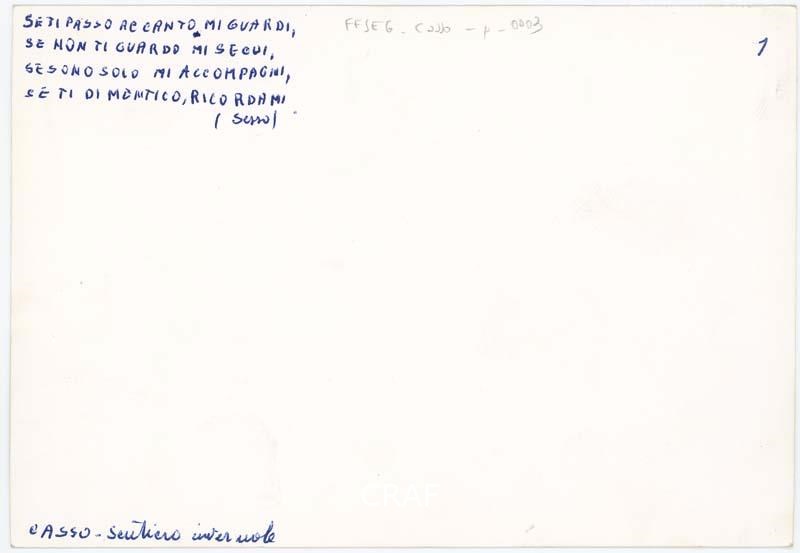 SE TI PASSO ACCANTO MI GUARDI,
SE NON TI GUARDO MI SEGUI,
SE SONO SOLO MI ACCOMPAGNI,
SE TI DIMENTICO, RICORDAMI
FFSEG - Casso - p - 0003
1
CRAF
CASSO - Sentiero invernale